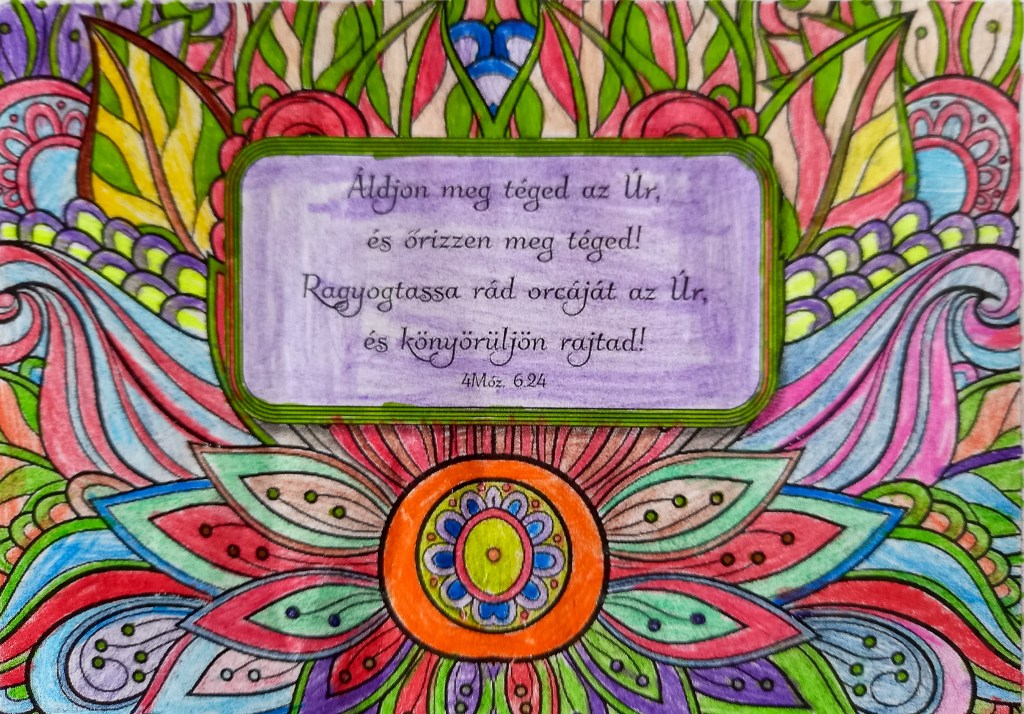 Áldjon meg téged az Úr,
és őrizzen meg téged!
Ragyogtassa rád orcáját az Úr,
és könyörüljön rajtad!
4Móz. 6.24